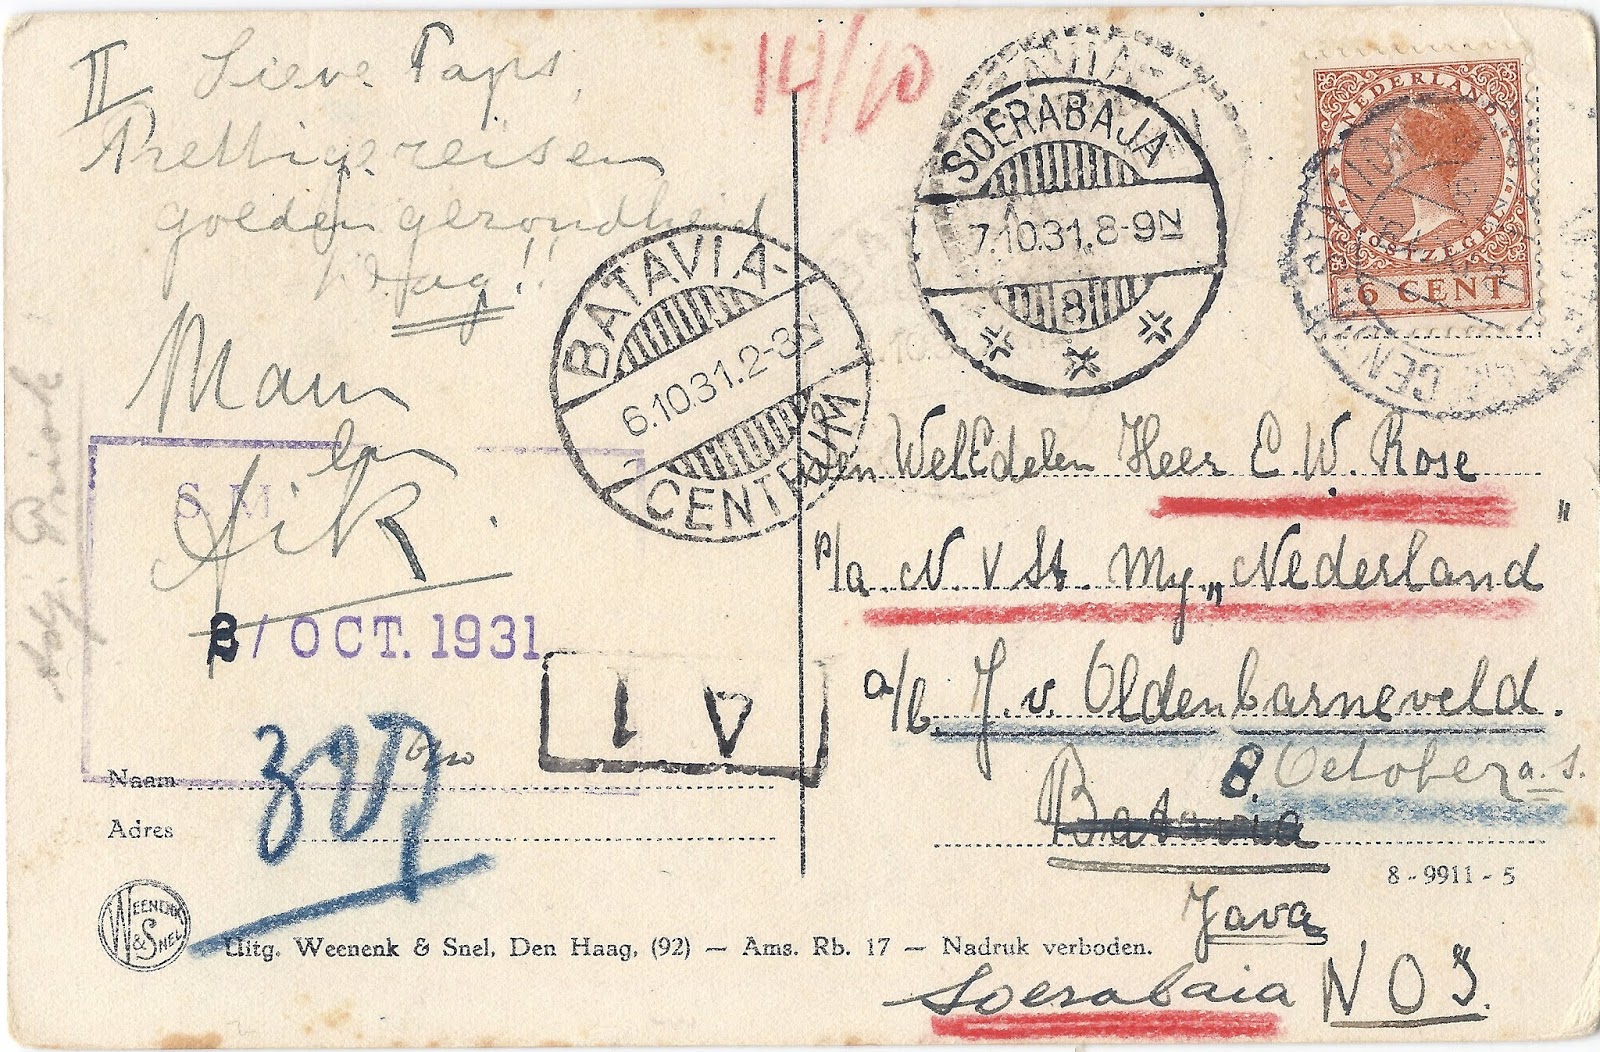 II Lieve Paps,
Prettige reis en
goeden gezondheid
Dag!!
Mam
en
Aik.
14/10
BATAVIA-
6.10.31.2-3N
CENTRUM
SOERABAJA
7.10.31.8-9N
8
NEDERLAND
POSTZEGEL
6 CENT
den WelEdelen Heer E. W. Rose
p/a N. V St. My „Nederland"
a/b. J. v. Oldenbarneveld.
8. October a.s.
Batavia
Java
Soerabaia N O I.
S. M
2/ OCT. 1931
IV
Naam
Adres
8 - 9911 - 5
WEENENK & SNEL
Uitg. Weenenk & Snel, Den Haag, (92) — Ams. Rb. 17 — Nadruk verboden.